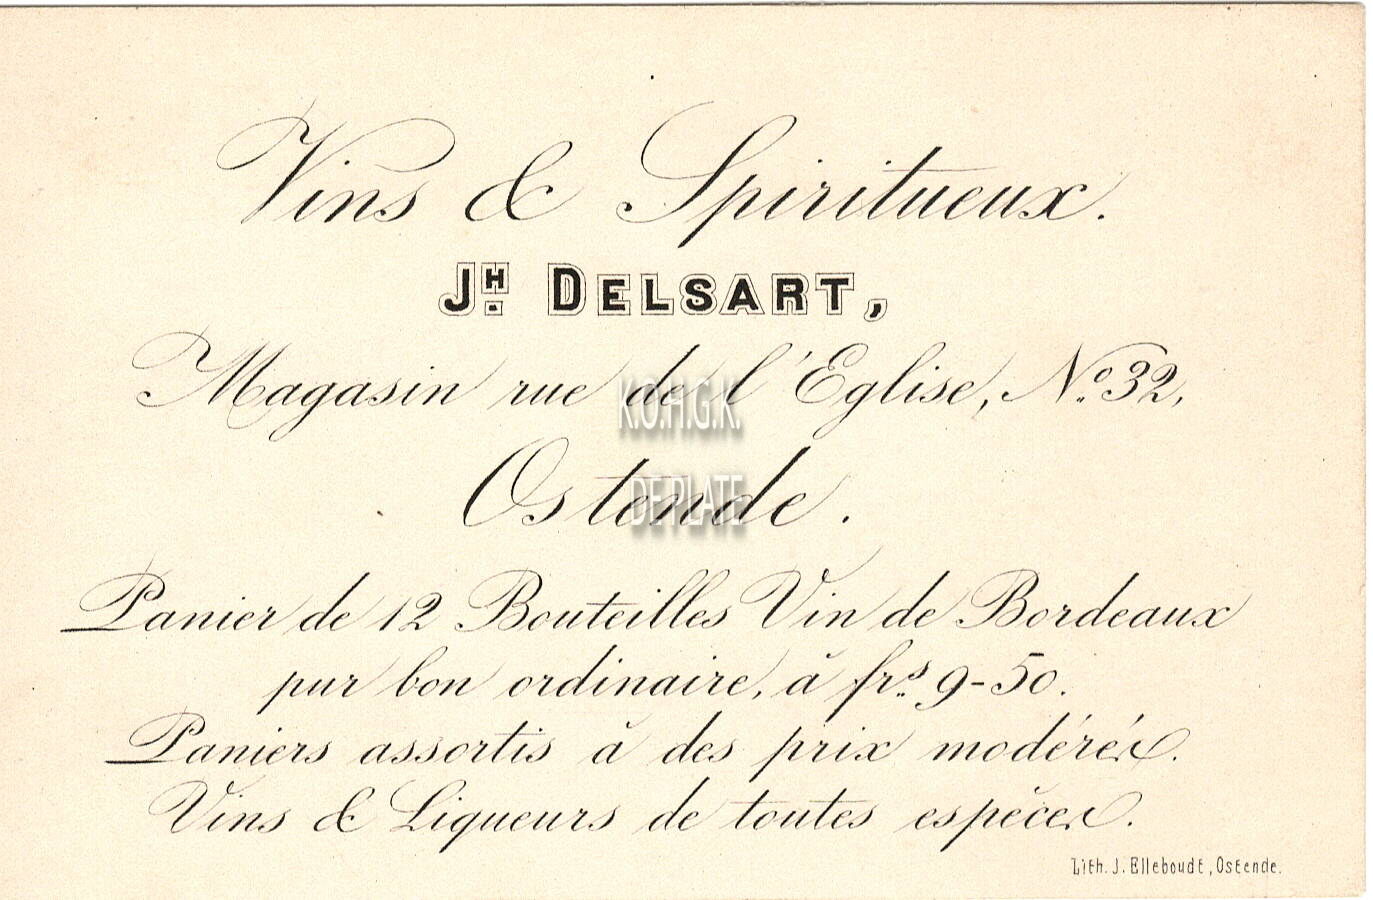 Vins & Spiritueux.
JH. DELSART,
Magasin rue de l'Eglise, No. 32,
K.O.H.G.K.
Ostende.
DE PLATE
Panier de 12 Bouteilles Vin de Bordeaux
pur bon ordinaire, à frs. 9-50.
Paniers assortis à des prix modérés.
Vins & Liqueurs de toutes espèces.
Lith. J. Elleboudt, Ostende.